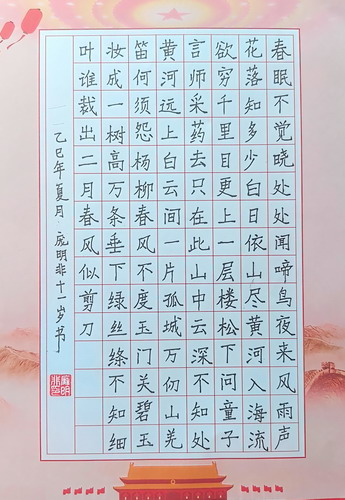 春眠不觉晓处处闻啼鸟夜来风雨声
花落知多少白日依山尽黄河入海流
欲穷千里目更上一层楼松下问童子
言师采药去只在此山中云深不知处
黄河远上白云间一片孤城万仞山羌
笛何须怨杨柳春风不度玉门关碧玉
妆成一树高万条垂下绿丝绦不知细
叶谁裁出二月春风似剪刀
乙巳年夏月 庞明非十一岁书